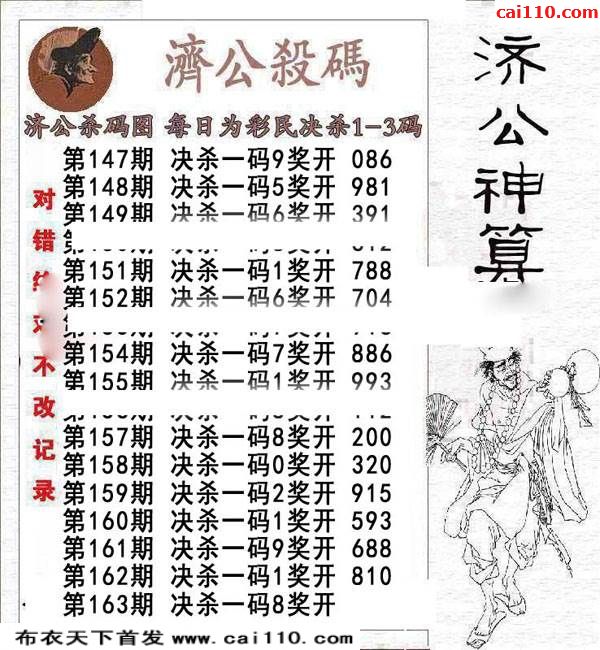 cai110.com
濟公殺碼
济公神算
济公杀码图 每日为彩民决杀1-3码
第147期 决杀一码9奖开 086
第148期 决杀一码5奖开 981
第149期 决杀一码6奖开 391
第151期 决杀一码1奖开 788
第152期 决杀一码6奖开 704
第154期 决杀一码7奖开 886
第155期 决杀一码1奖开 993
第157期 决杀一码8奖开 200
第158期 决杀一码0奖开 320
第159期 决杀一码2奖开 915
第160期 决杀一码1奖开 593
第161期 决杀一码9奖开 688
第162期 决杀一码1奖开 810
第163期 决杀一码8奖开
对错
不改记录
布衣天下首发 www.cai110.com